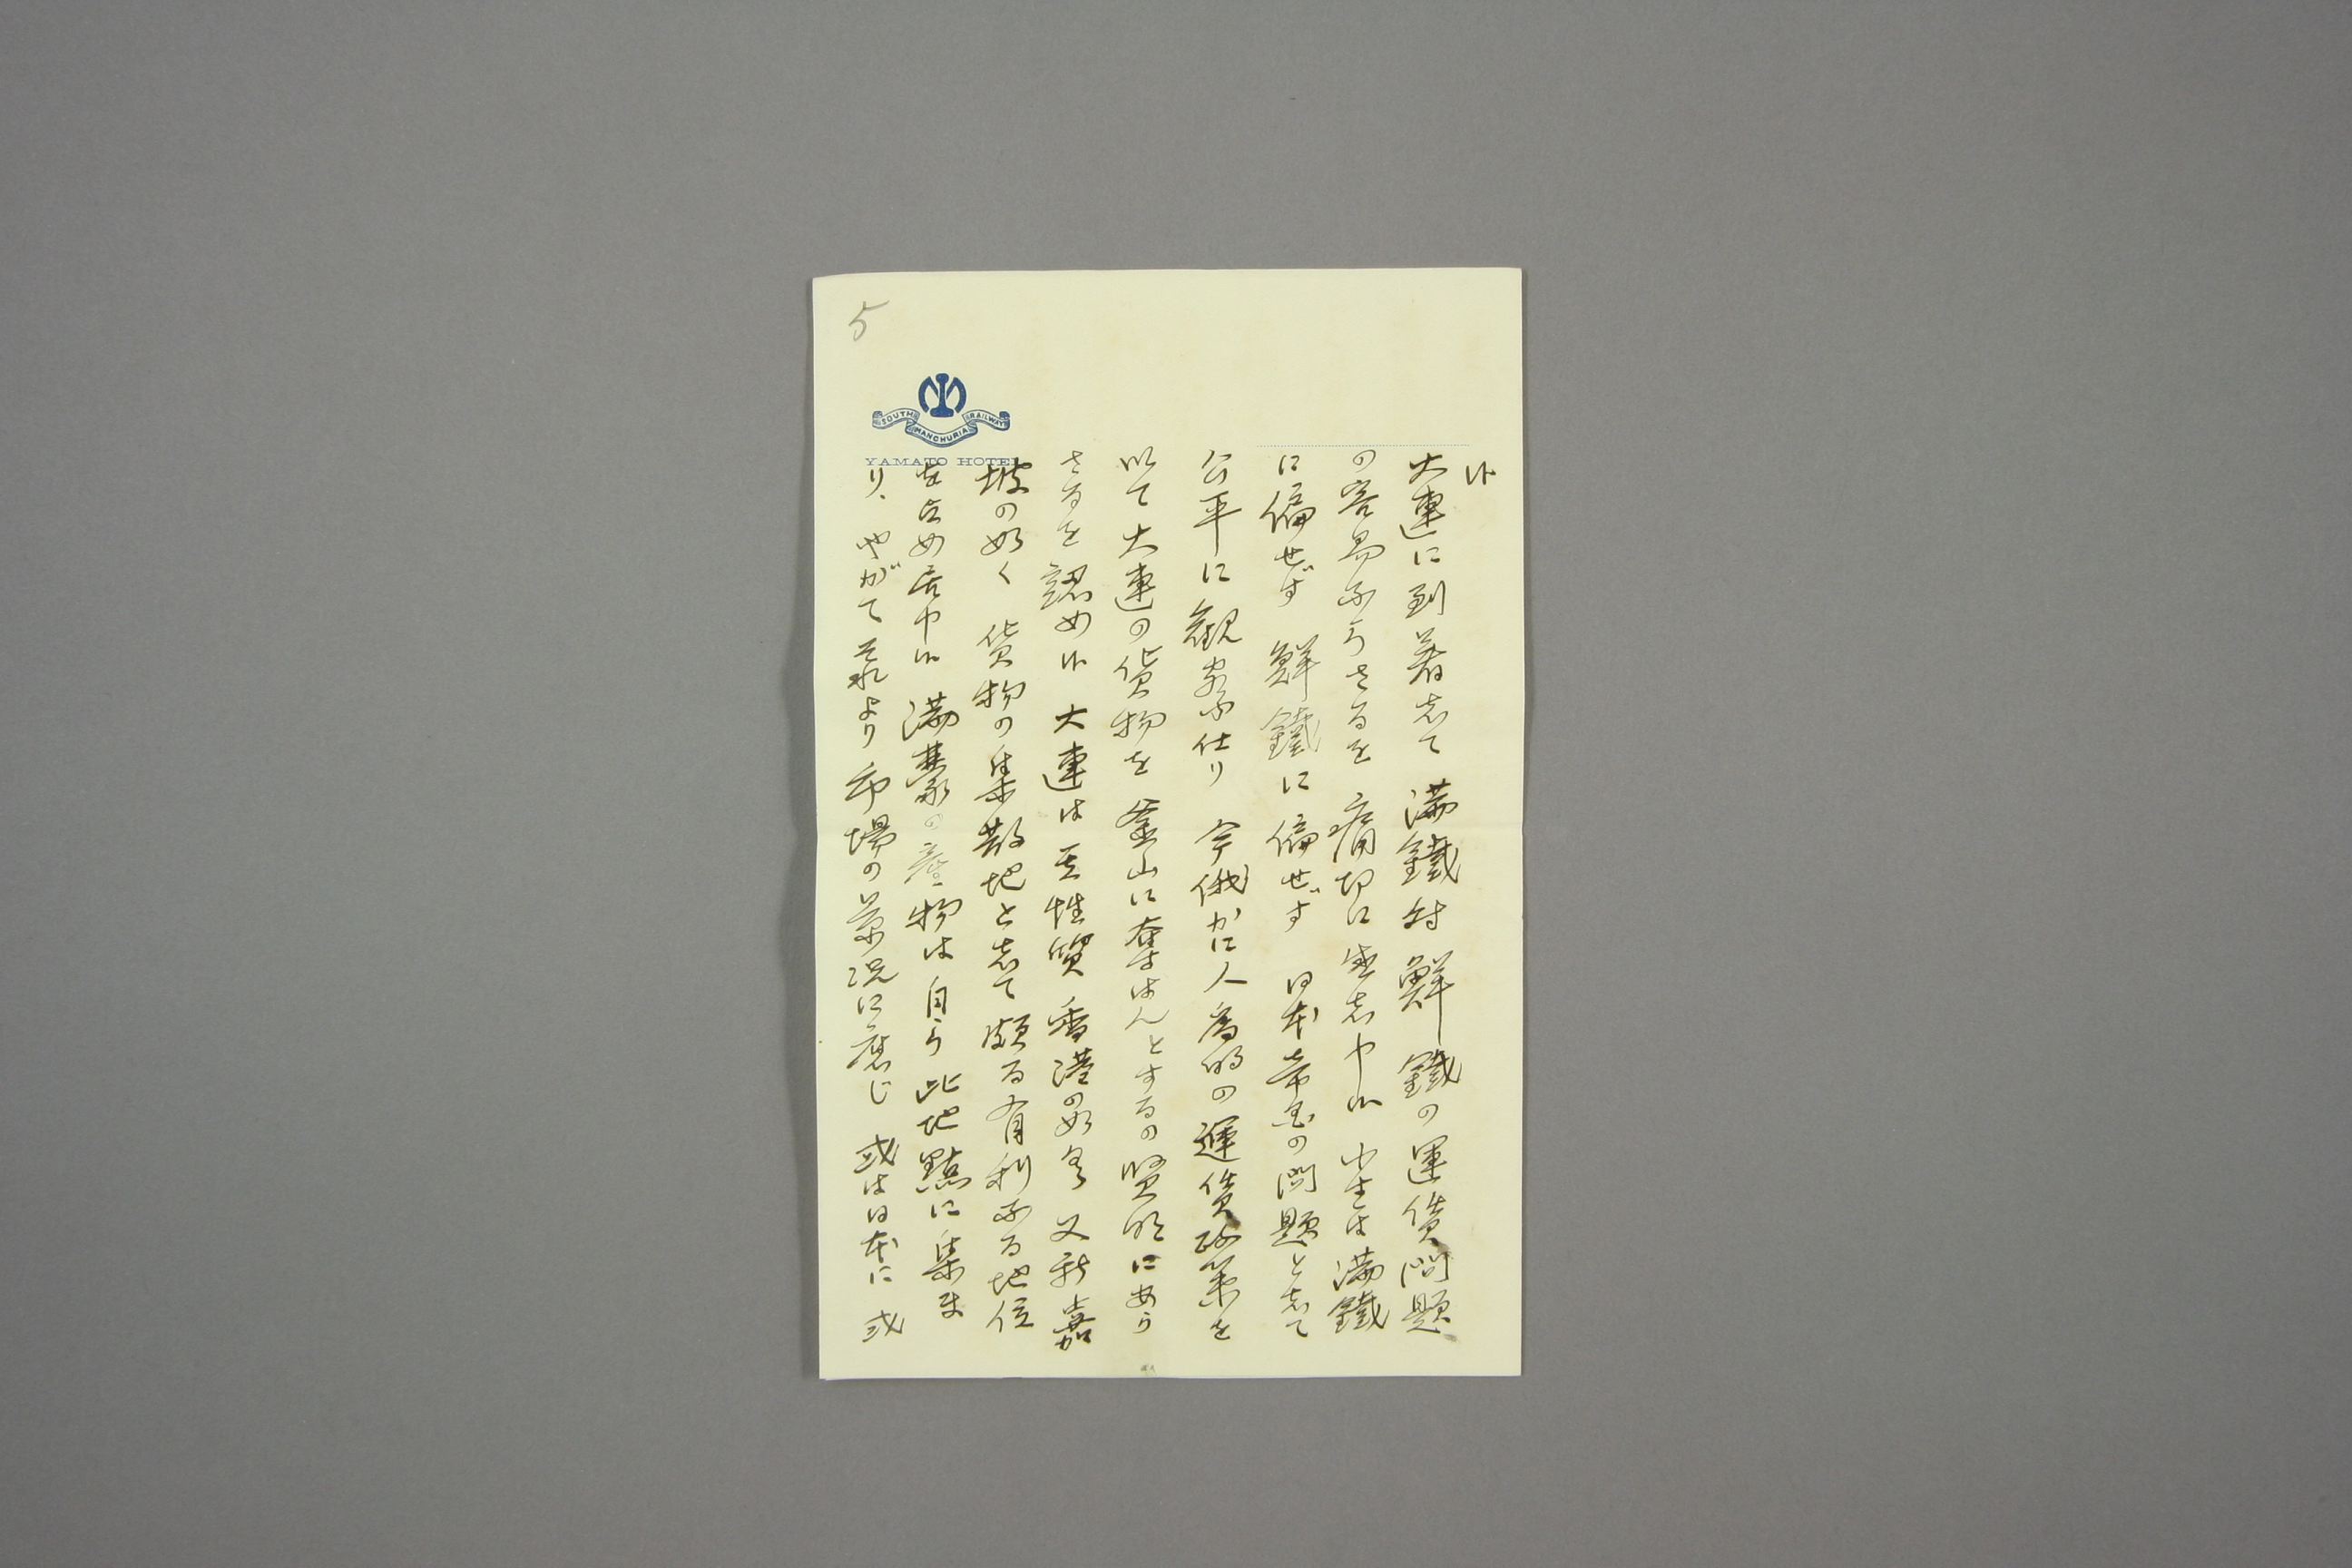 5
SOUTH MANCHURIA RAILWAY
YAMATO HOTEL
候
大連に到着志て満鐵対鮮鐵の運賃問題
の容易ならさるを痛切に感志申候 小生は満鐵
に偏せず鮮鐵に偏せず 日本帝国の問題と志て
公平に観察仕り 今俄かに人為的の運賃政策を
以て大連の貨物を釜山に奪はんとするの賢明にあら
さるを認め候 大連は其性質香港の如く 又新嘉
坡の如く 貨物の集散地と志て頗る有利なる地位
を占め居申候 満蒙の産物は自ら此地點に集ま
り、やがてそれより市場の景況に應じ 或は日本に 或